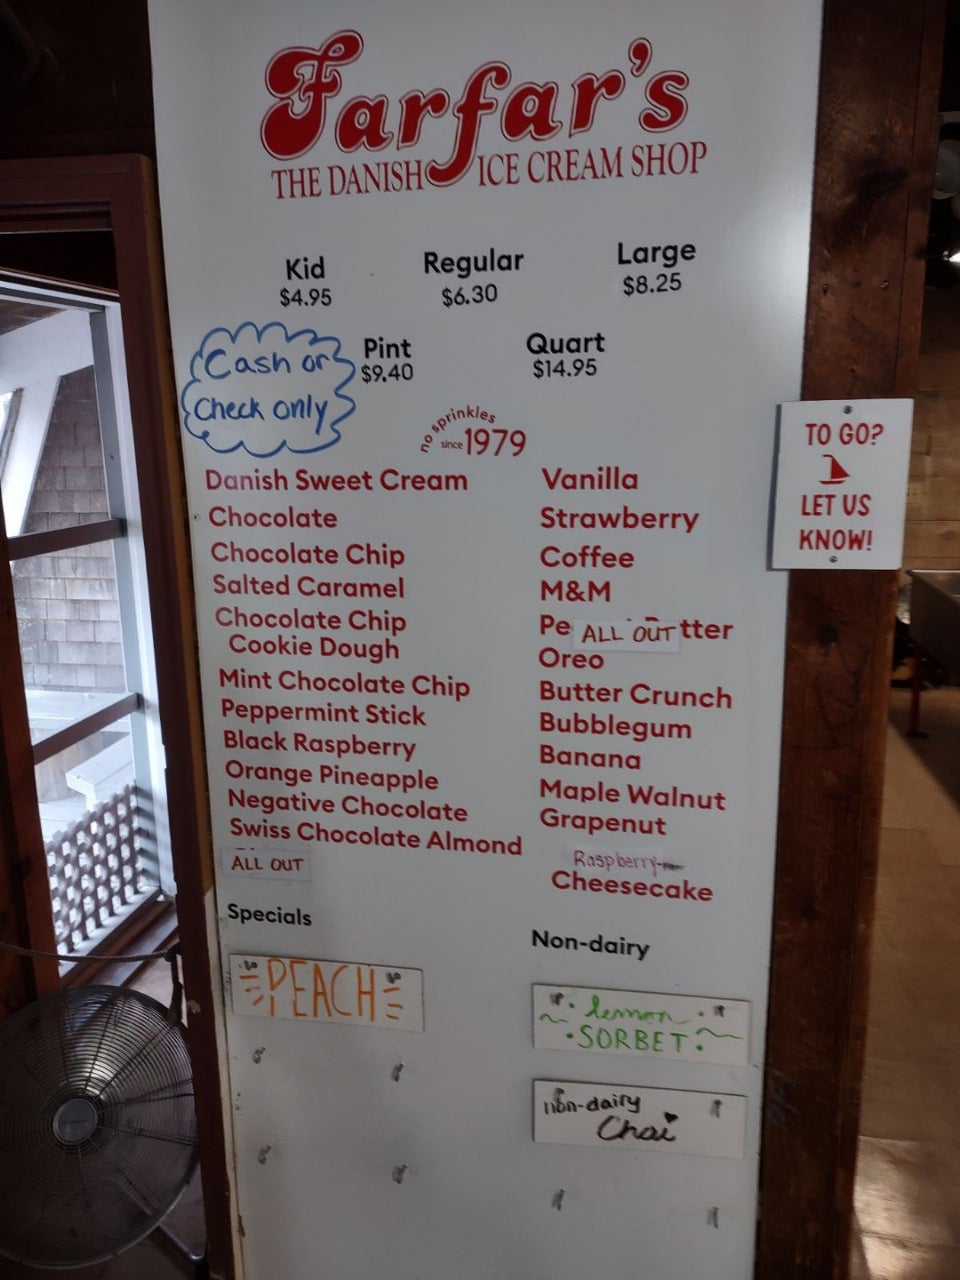 Farfar's
THE DANISH ICE CREAM SHOP
Kid Regular Large
$4.95 $6.30 $8.25
Cash or
Check only
Pint Quart
$9.40 $14.95
no sprinkles
since 1979
Danish Sweet Cream
Chocolate
Chocolate Chip
Salted Caramel
Chocolate Chip
Cookie Dough
Mint Chocolate Chip
Peppermint Stick
Black Raspberry
Orange Pineapple
Negative Chocolate
Swiss Chocolate Almond
ALL OUT
Vanilla
Strawberry
Coffee
M&M
ALL OUT
Oreo
Butter Crunch
Bubblegum
Banana
Maple Walnut
Grapenut
Raspberry
Cheesecake
Specials
PEACH
Non-dairy
lemon
SORBET
non-dairy
Chai
TO GO?
LET US
KNOW!